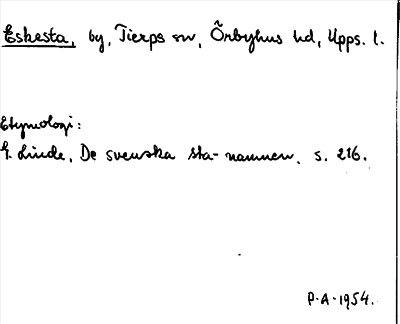 Eskesta, by, Tierps sn, Örbyhus hd, Upps. l.
Etymologi:
G. Linde, De svenska sta-namnen, s. 216.
P.A. 1954.